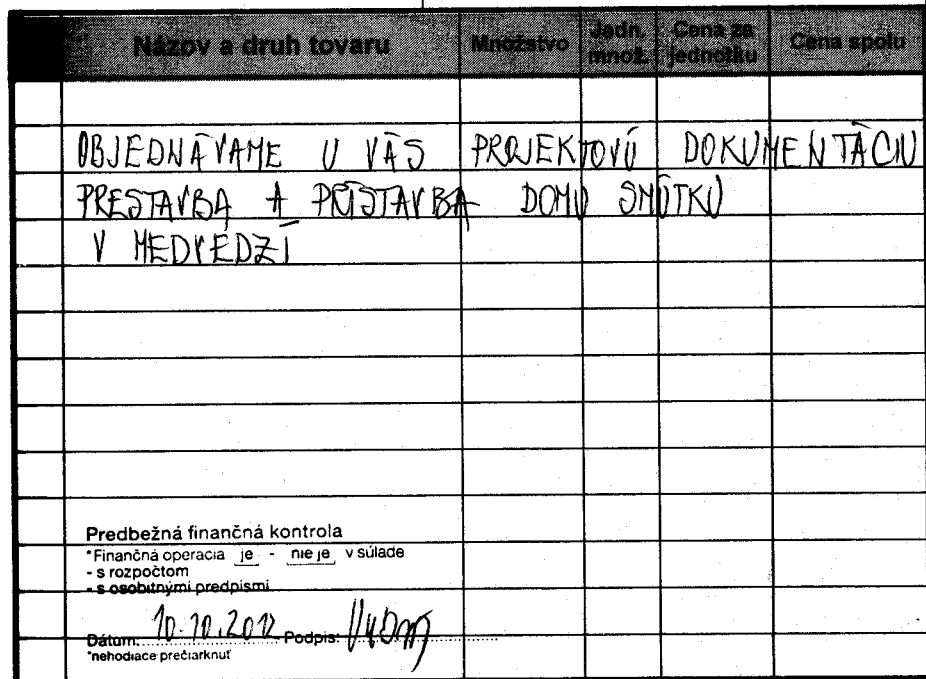 Názov a druh tovaru Množstvo Jedn. množ. Cena za jednotku Cena spolu
OBJEDNÁVAME U VÁS PROJEKTOVÚ DOKUMENTÁCIU
PRESTAVBA A PRÍSTAVBA DOMU SMÚTKU
V MEDVEDZÍ
Predbežná finančná kontrola
*Finančná operacia je - nie je v súlade
- s rozpočtom
- s osobitnými predpismi
Dátum: 10.10.2012 Podpis:
*nehodiace prečiarknuť